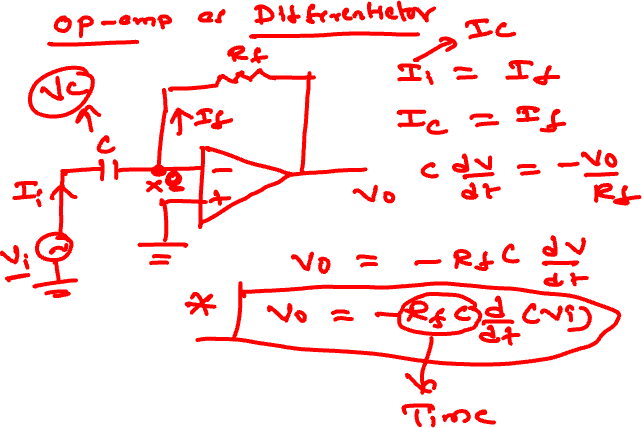 OP-amp as Differentiator
Rf
Vc
If
C
Ii
Vi
x
-
+
Vo
Ic
Ii = If
Ic = If
C dV/dt = -Vo/Rf
Vo = - Rf C dV/dt
* Vo = - Rf C d/dt (Vi)
Time